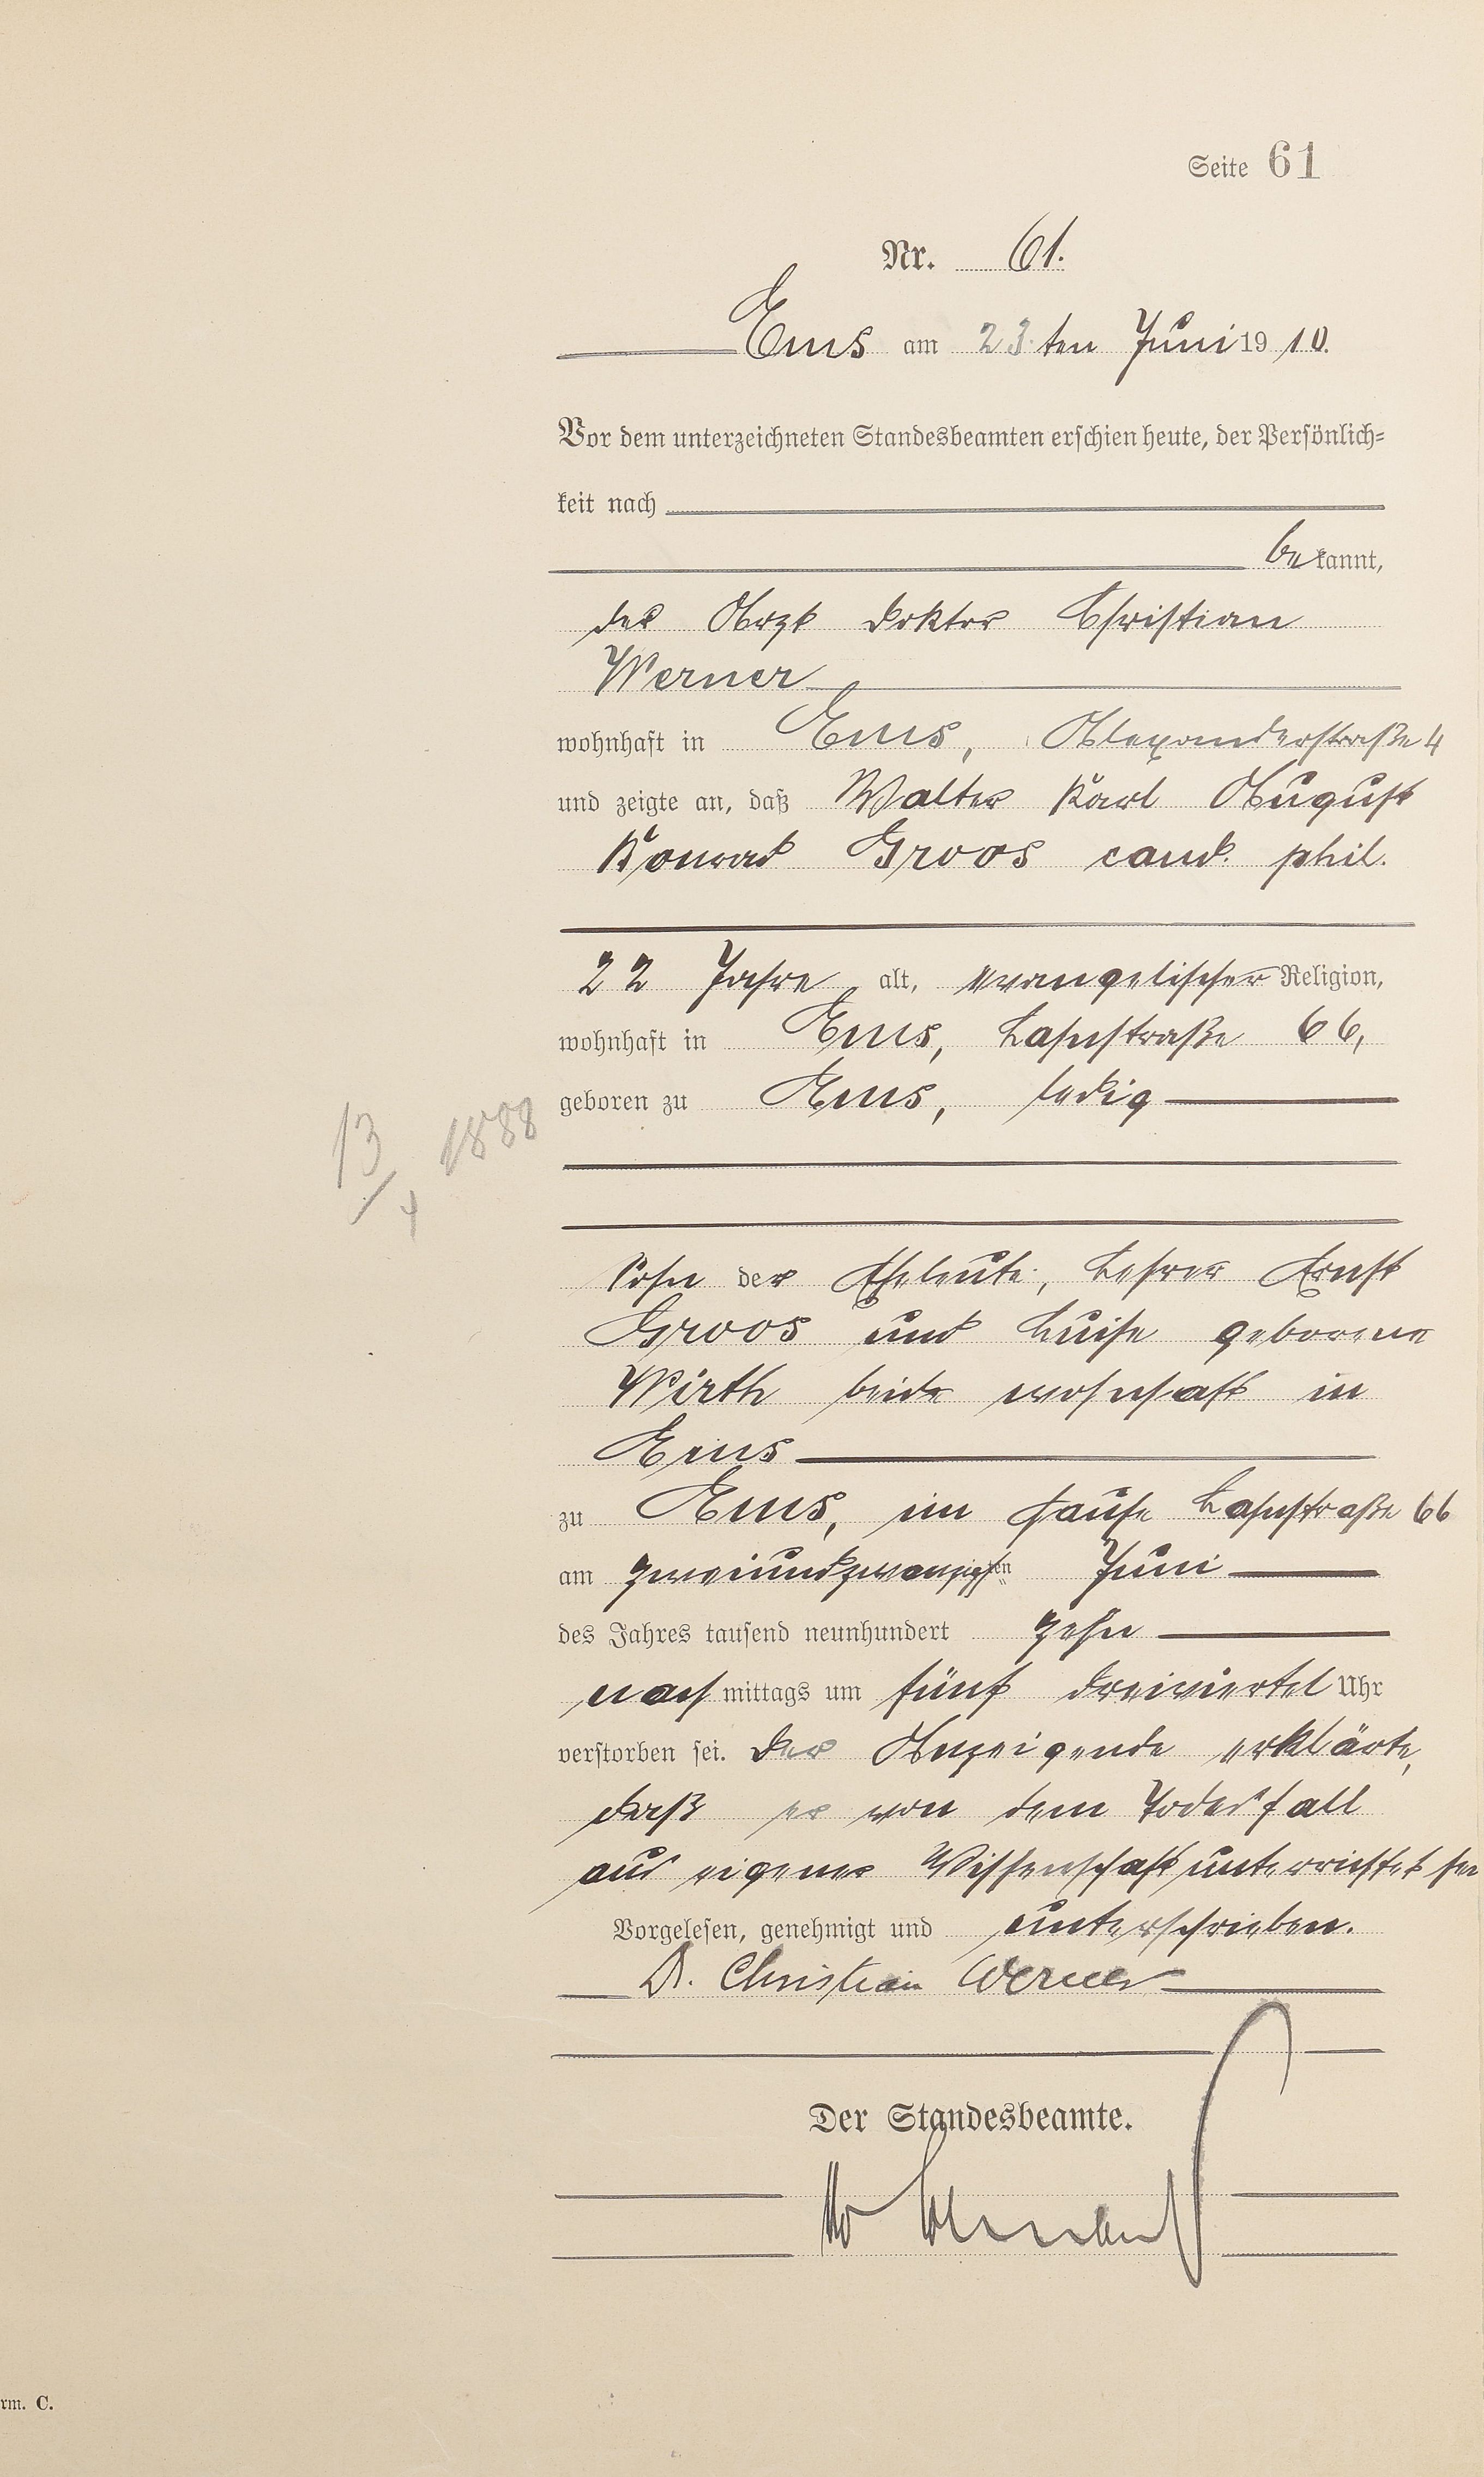 Seite 61
Nr. 61.
Ems am 23.ten Juni 1910.
Vor dem unterzeichneten Standesbeamten erschien heute, der Persönlich=
keit nach
bekannt,
der Arzt Doktor Christian
Werner
wohnhaft in Ems, Alexanderstraße 4
und zeigte an, daß Walter Karl August
Konrad Groos cand. phil.
22 Jahre alt, evangelischer Religion,
wohnhaft in Ems, Lahnstraße 66,
geboren zu Ems, ledig
13/4 1888
Sohn der Eheleute, Lehrer Ernst
Groos und Luise geborene
Wirth beide wohnhaft in
Ems
zu Ems, im Hause Lahnstraße 66
am zweiundzwanzigsten Juni
des Jahres tausend neunhundert zehn
nachmittags um fünf dreiviertel Uhr
verstorben sei. Der Anzeigende erklärte,
daß er von dem Todesfall
aus eigener Wissenschaft unterrichtet sei
Vorgelesen, genehmigt und unterschrieben.
Dr. Christian Werner
Der Standesbeamte.
rm. C.